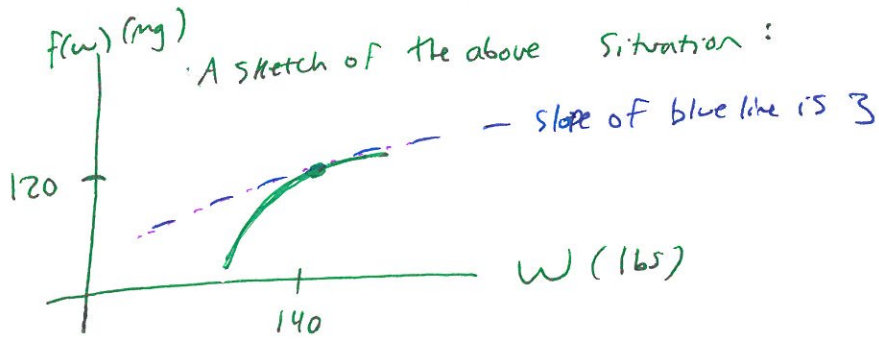 f(w) (mg)
· A sketch of the above situation :
— slope of blue line is 3
120
W (lbs)
140